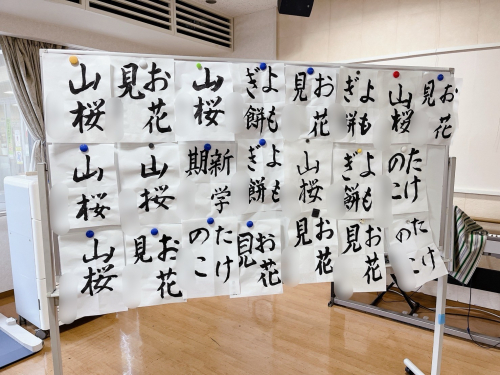 山桜
お花
見
山桜
よも
ぎ餅
お花
見
よも
ぎ餅
山桜
お花
見
山桜
山桜
新学
期
よも
ぎ餅
山桜
よも
ぎ餅
たけ
のこ
山桜
お花
見
たけ
のこ
お花
見
お花
見
お花
見
たけ
のこ